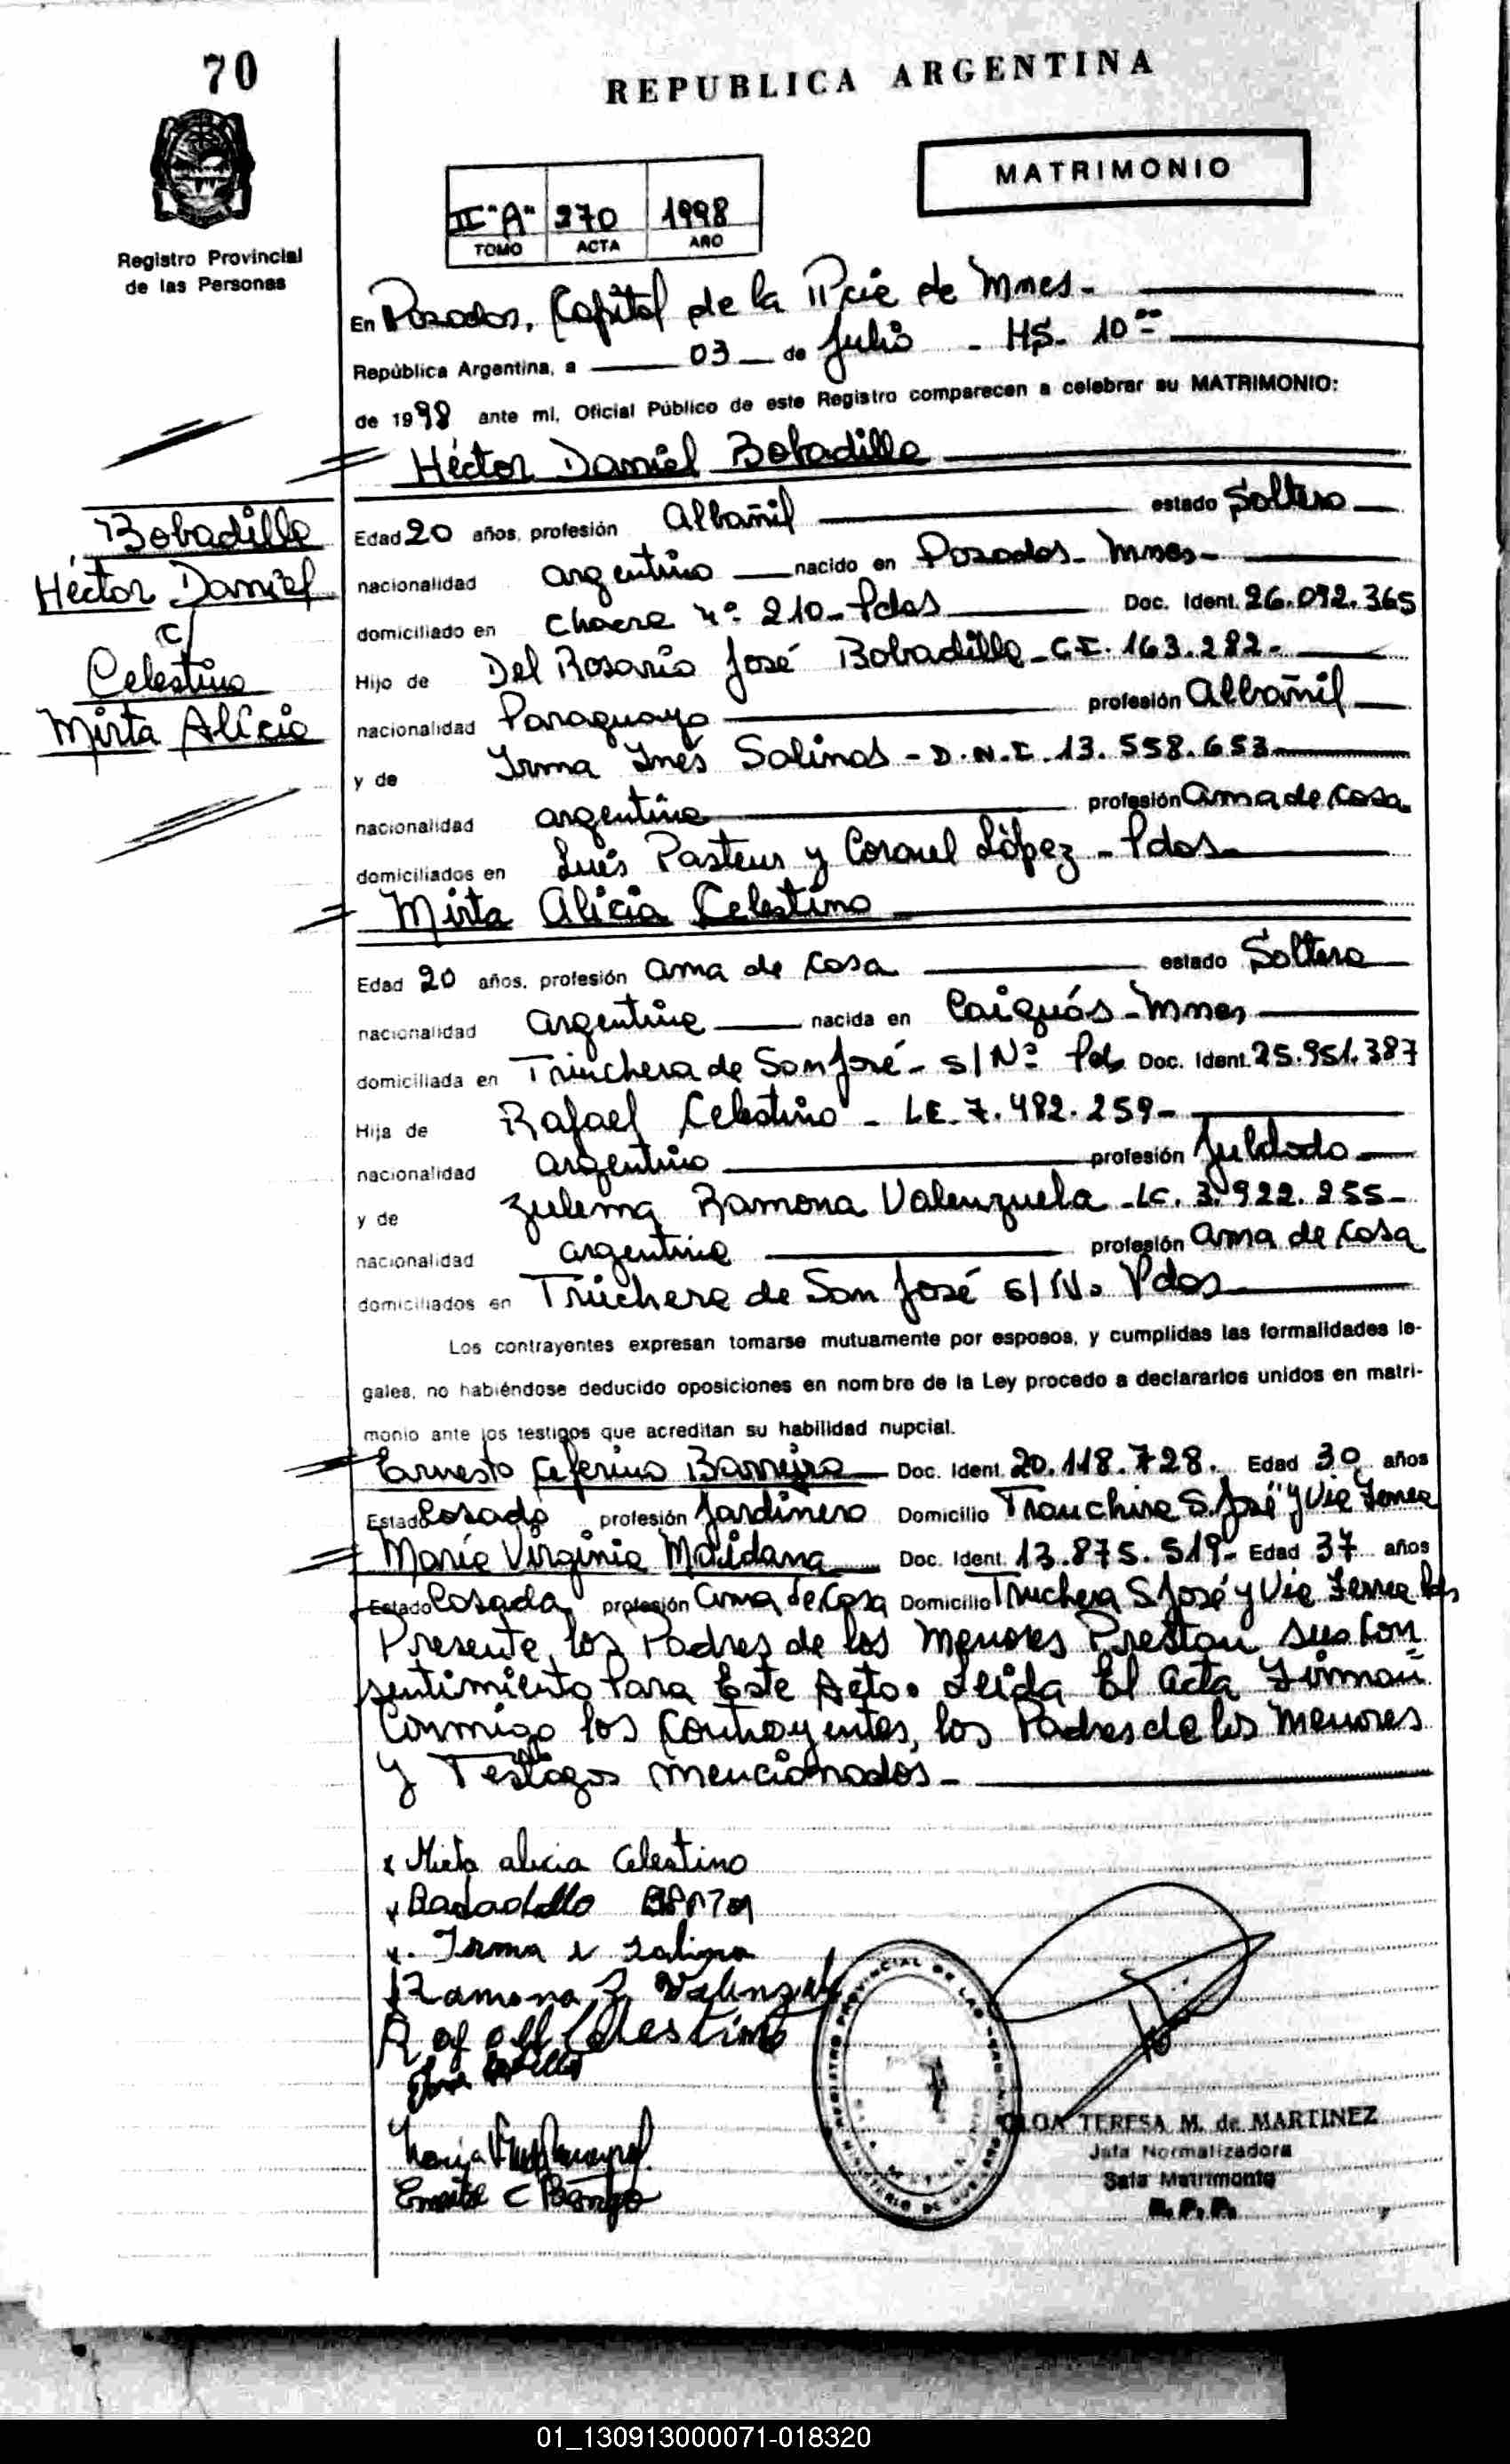 70
REPUBLICA ARGENTINA
MATRIMONIO
II "A" 270 1998
TOMO ACTA AÑO
Registro Provincial
de las Personas
En Posadas, Capital de la Pcie de Mnes.
República Argentina, a 03 de Julio - HS. 10
de 1998 ante mi, Oficial Público de este Registro comparecen a celebrar su MATRIMONIO:
Héctor Daniel Bobadilla
Bobadilla
Héctor Daniel
c/
Celestino
Mirta Alicia
Edad 20 años, profesión Albañil estado Soltero
nacionalidad argentino nacido en Posadas - Mnes -
domiciliado en Chacra nº 210 - Pdas Doc. Ident. 26.092.365
Hijo de Del Rosario José Bobadilla - C.I. 163.282 -
nacionalidad Paraguayo profesión Albañil
y de Irma Inés Salinas - D.N.I. 13.558.653
nacionalidad argentina profesión ama de casa
domiciliados en Luis Pasteur y Coronel López - Pdas
Mirta Alicia Celestino
Edad 20 años, profesión ama de casa estado Soltera
nacionalidad argentina nacida en Caiguás - Mnes
domiciliada en Trinchera de San José - s/Nº Pds Doc. Ident. 25.951.387
Hija de Rafael Celestino - LE. 7.482.259 -
nacionalidad argentino profesión Jubilado
y de Zulema Ramona Valenzuela - LC. 3.922.255 -
nacionalidad argentina profesión ama de casa
domiciliados en Trinchera de San José s/Nº Pdas
Los contrayentes expresan tomarse mutuamente por esposos, y cumplidas las formalidades le-
gales, no habiéndose deducido oposiciones en nombre de la Ley procedo a declararlos unidos en matri-
monio ante los testigos que acreditan su habilidad nupcial.
Ernesto Ceferino Barreiro Doc. Ident. 20.118.728. Edad 30 años
Estado Casado profesión Jardinero Domicilio Trinchera S. José y Vie Ferrea
María Virginia Maidana Doc. Ident. 13.875.519 - Edad 37 años
Estado Casada profesión ama de casa Domicilio Trinchera S José y Vie Ferrea Pds
Presente los Padres de los menores Prestan sus Con
sentimiento Para Este Acto. Leida El acta Firman
Conmigo los contrayentes, los Padres de los menores
y Testigos mencionados -
x Mirta alicia Celestino
x Irma i Salina
Ramona Z Valenzuela
Rafael Celestino
Ernesto C
TERESA M. de MARTINEZ
Jefa Normalizadora
Sala Matrimonio
R. P. P.
01_130913000071-018320